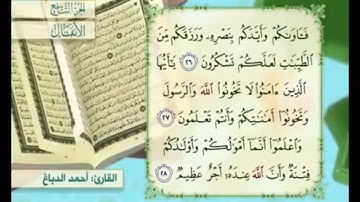 الجزء التاسع
الأنفال
فَـَٔاوَىٰكُمْ وَأَيَّدَكُم بِنَصْرِهِۦ وَرَزَقَكُم مِّنَ
ٱلطَّيِّبَـٰتِ لَعَلَّكُمْ تَشْكُرُونَ ٢٦ يَـٰٓأَيُّهَا
ٱلَّذِينَ ءَامَنُوا۟ لَا تَخُونُوا۟ ٱللَّهَ وَٱلرَّسُولَ
وَتَخُونُوٓا۟ أَمَـٰنَـٰتِكُمْ وَأَنتُمْ تَعْلَمُونَ ٢٧
وَٱعْلَمُوٓا۟ أَنَّمَآ أَمْوَٰلُكُمْ وَأَوْلَـٰدُكُمْ
فِتْنَةٌ وَأَنَّ ٱللَّهَ عِندَهُۥٓ أَجْرٌ عَظِيمٌ ٢٨
القارئ: أحمد الدباغ